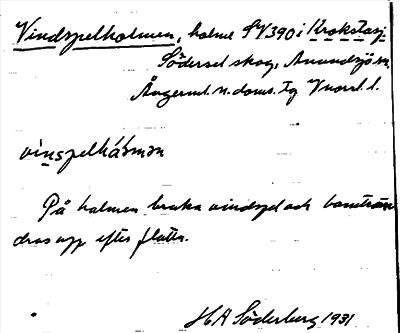 Vindspelholmen, holme SV390 i Krokstasj.
Södersel skog, Anundsjö sn.
Ångerml. n. doms. tg Vnorrl. l.
vinspelhǻmən
På holmen bruka vindspel och bomträn
dras upp efter flotn.
HA Söderberg 1931